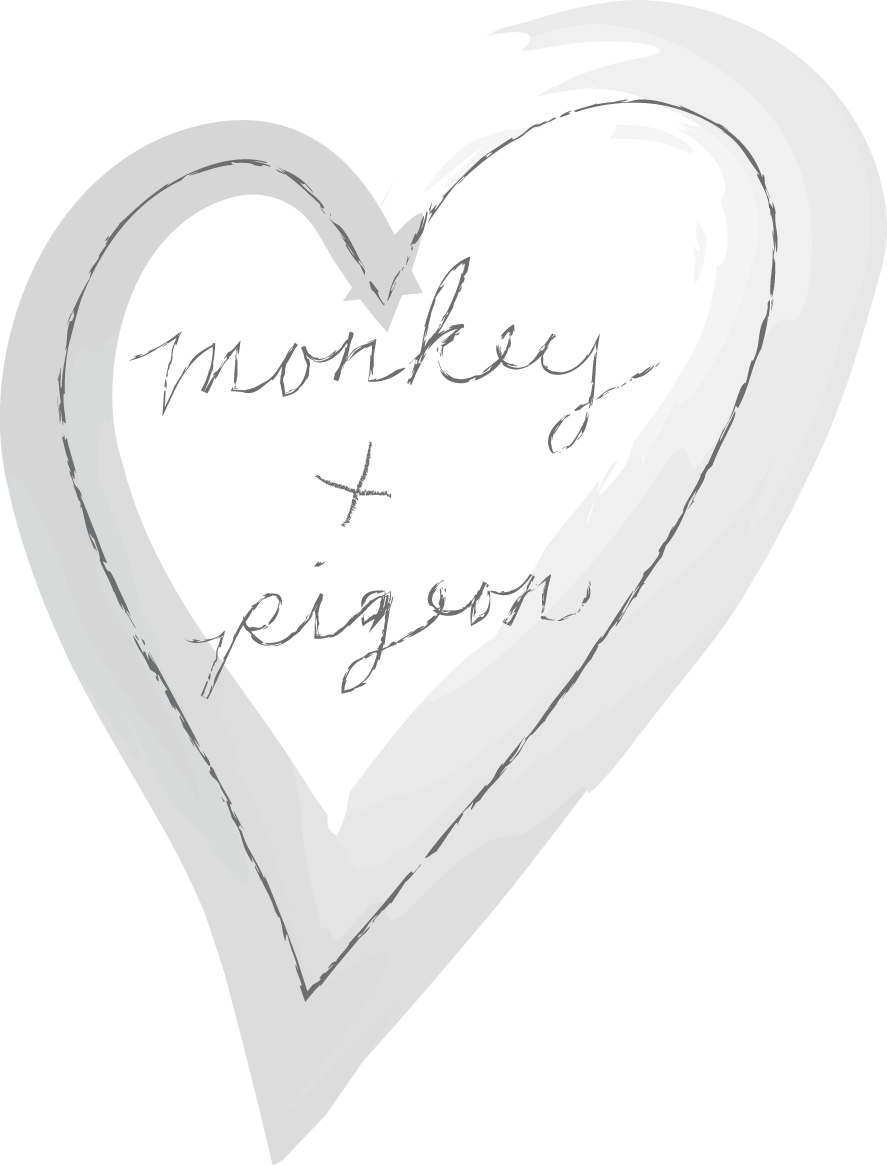 monkey
+
pigeon